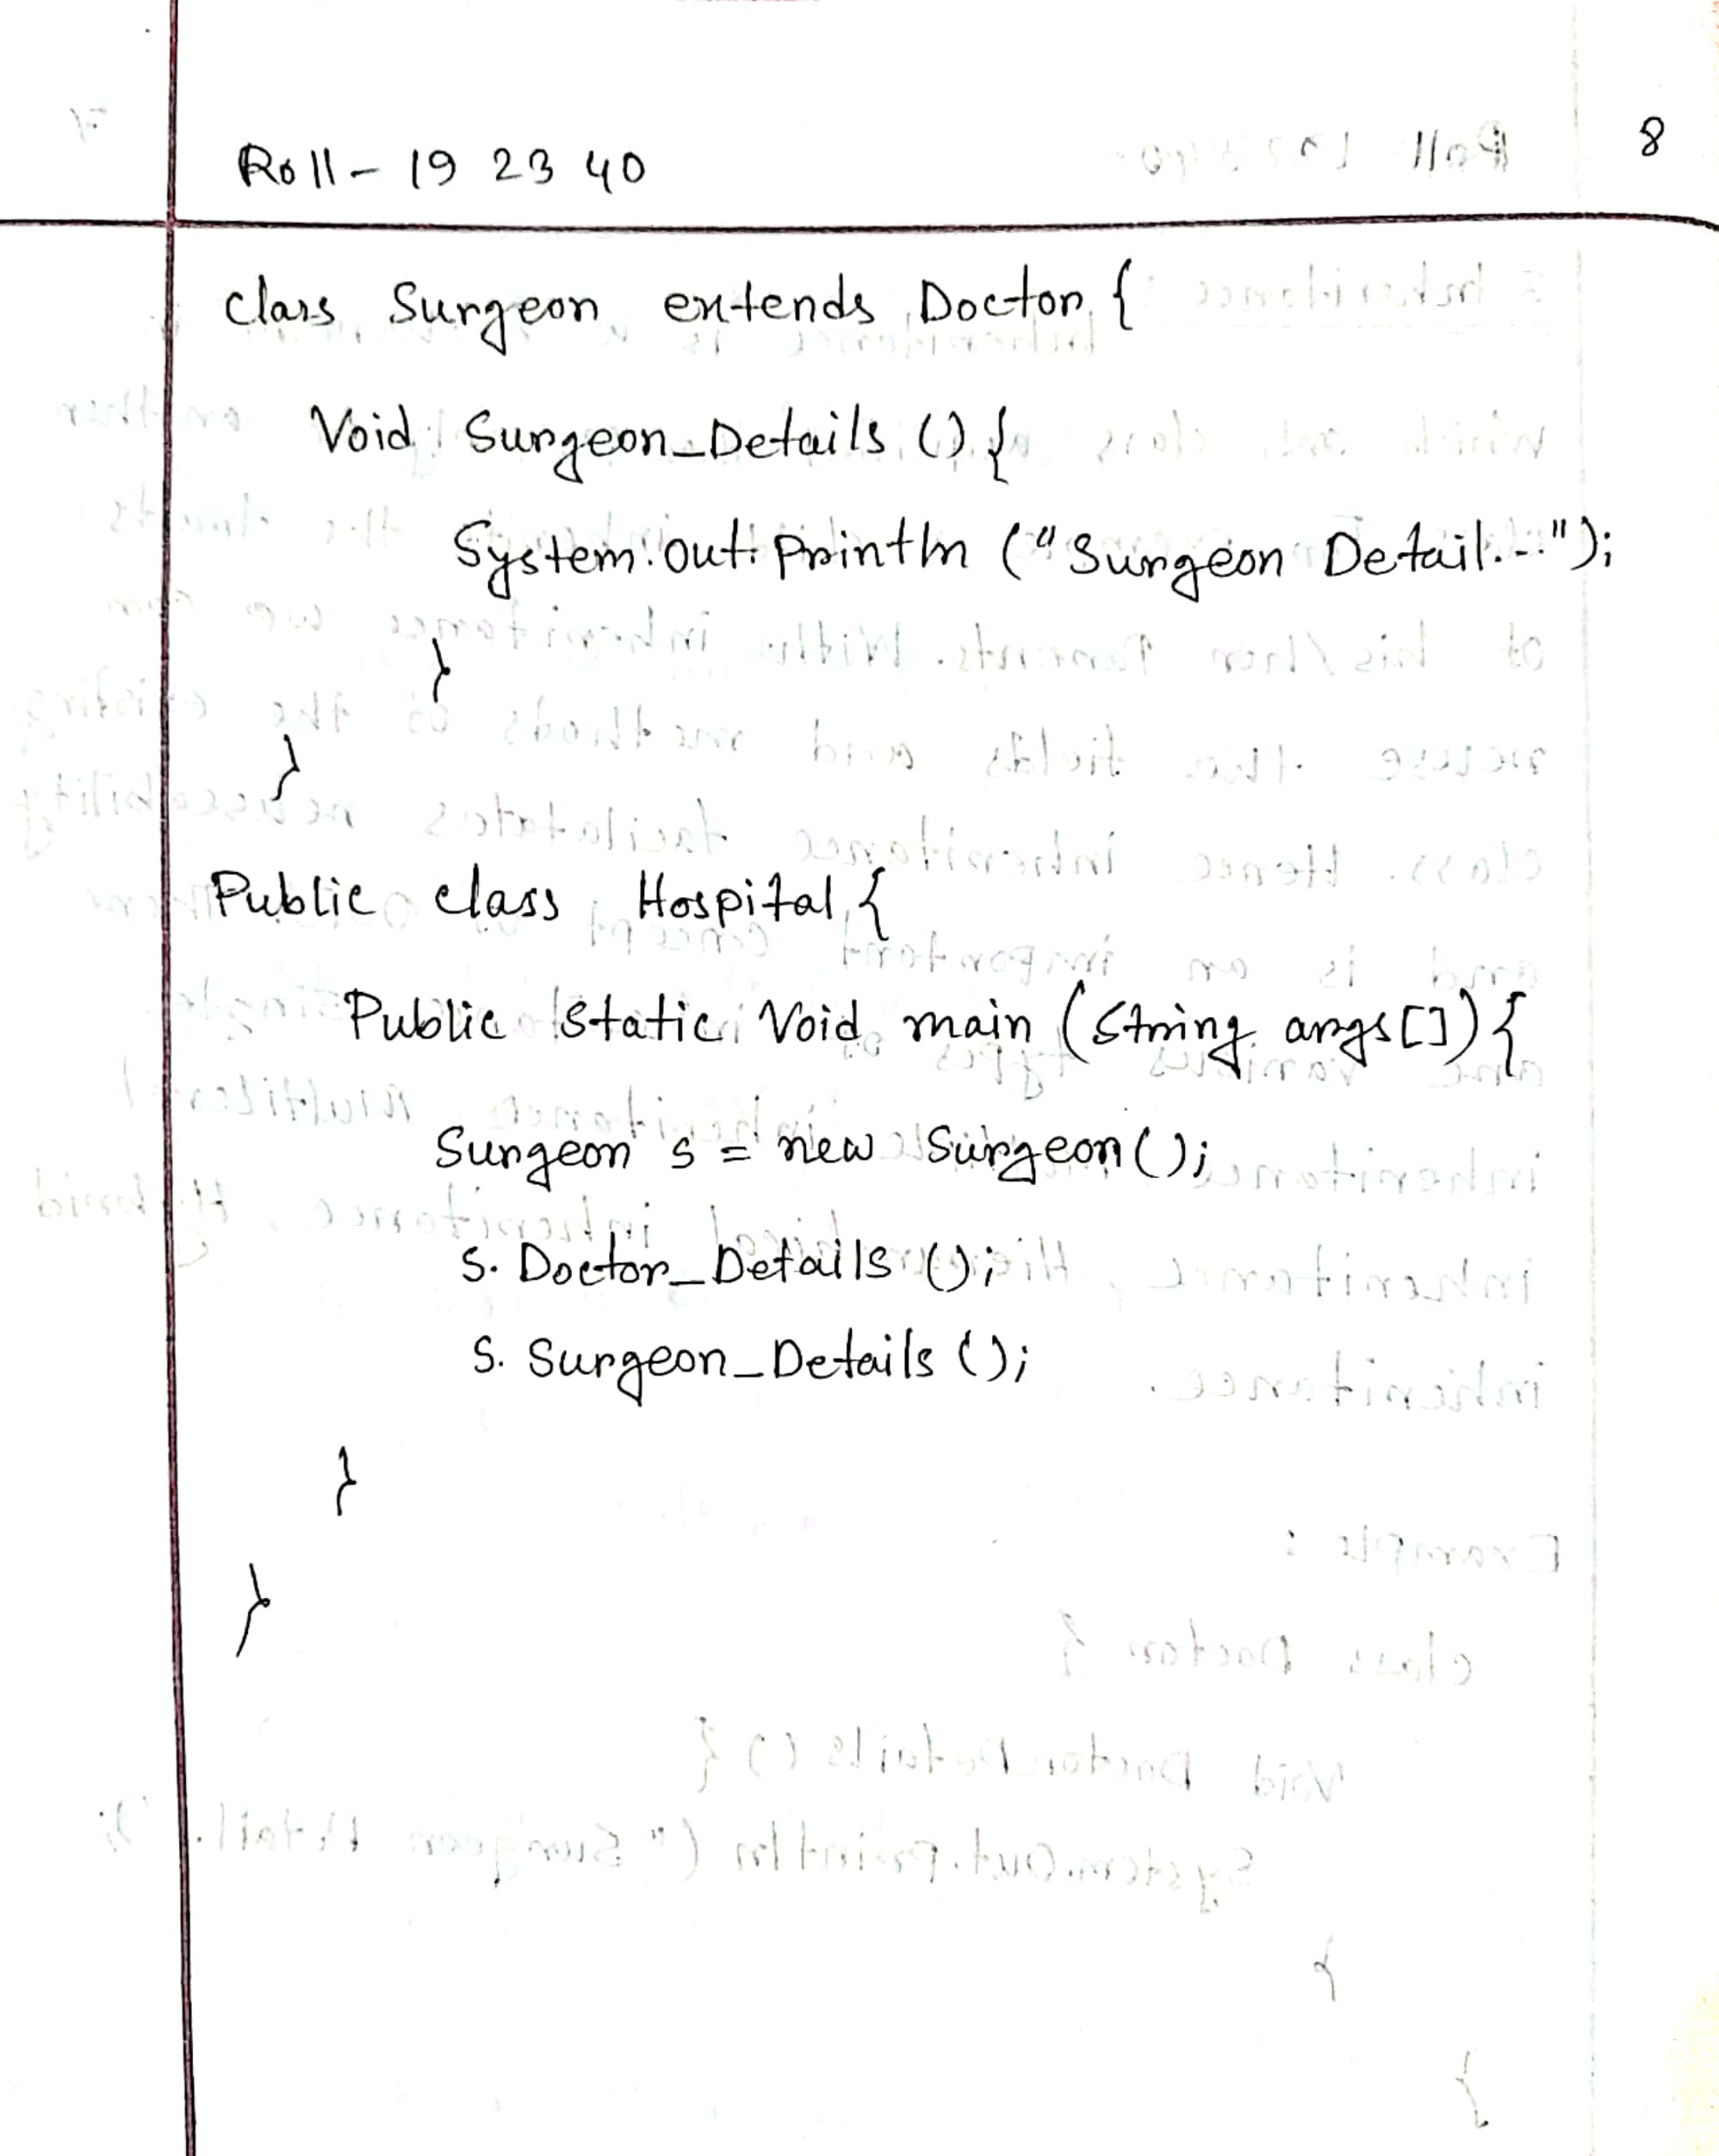 8
Roll - 19 23 40
class Surgeon extends Doctor {
Void Surgeon_Details () {
System.out.println ("Surgeon Detail...");
}
}
Public class Hospital {
Public Static Void main (String args []) {
Surgeon s = new Surgeon ();
S. Doctor_Details ();
S. Surgeon_Details ();
}
}